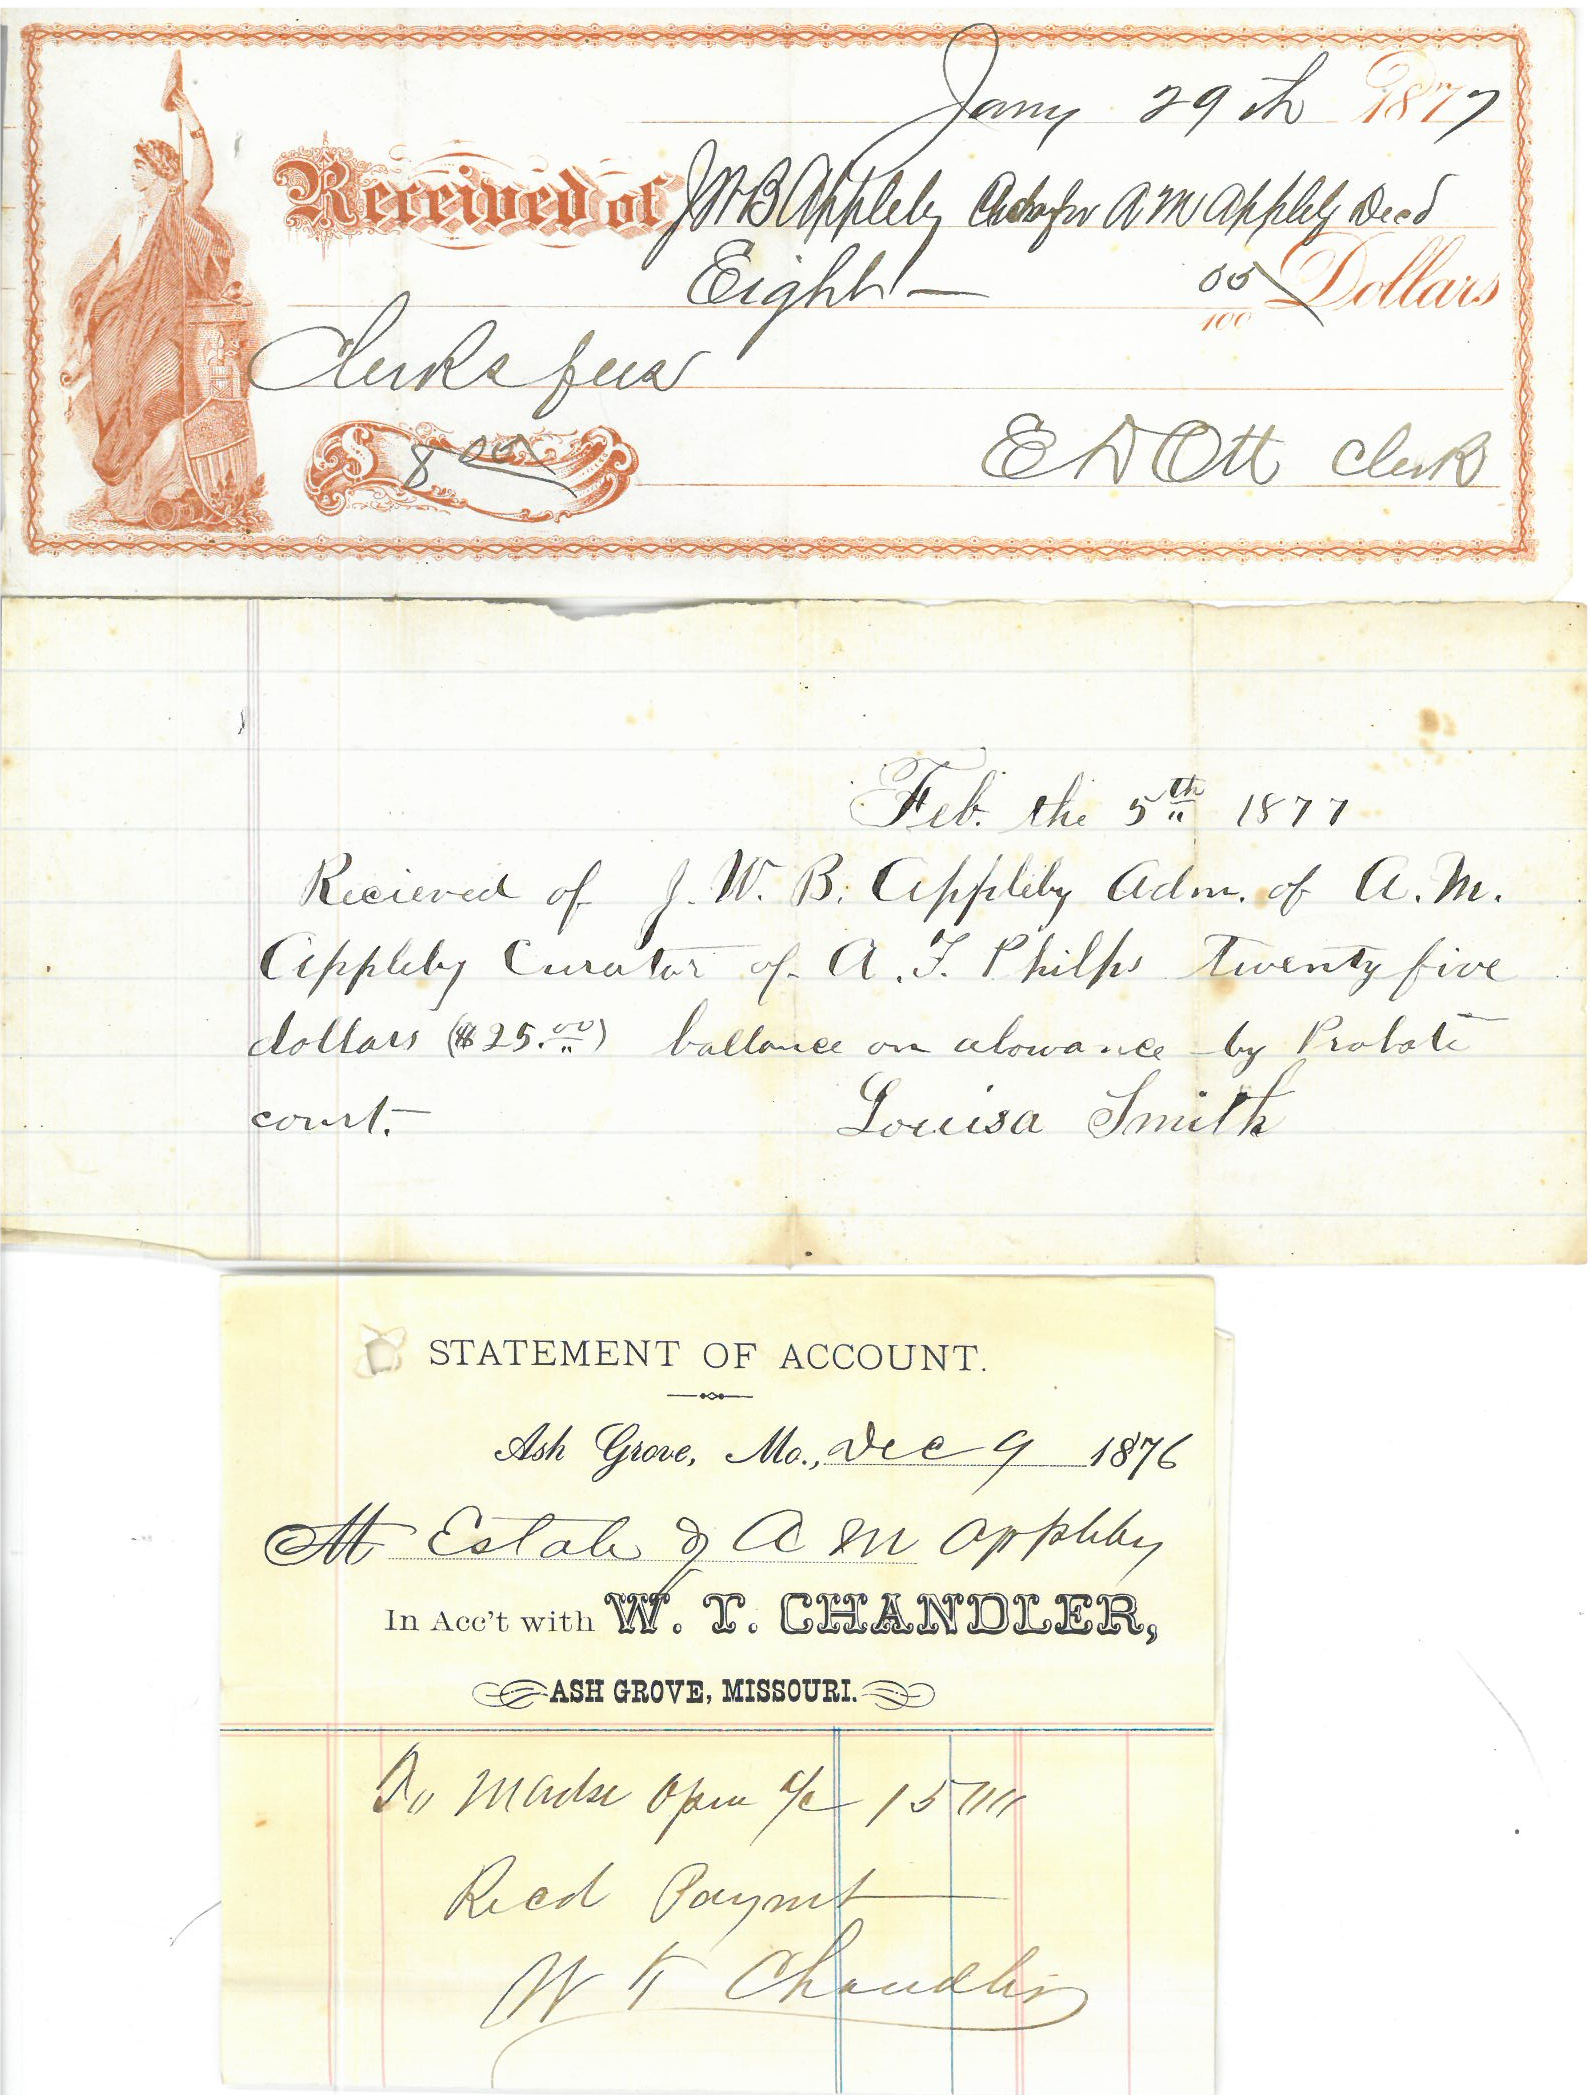 Jany 29th 1877
Received of J W B Appleby Admr for A M Appleby Decd
Eight — 00/100 Dollars
Clerks fees
$ 8 00 E D Ott Clerk
Feb. the 5th 1877
Recieved of J. W. B. Appleby Adm. of A. M.
Appleby Curator of A. F. Philps Twenty five
dollars ($25.00) ballance on alowance by Probate
court. Louisa Smith
STATEMENT OF ACCOUNT.
Ash Grove, Mo., Dec 9 1876
M Estate of A M Appleby
In Acc't with W. T. CHANDLER,
ASH GROVE, MISSOURI.
To Mdse Open a/c 15
Recd Paymt
W T Chandler